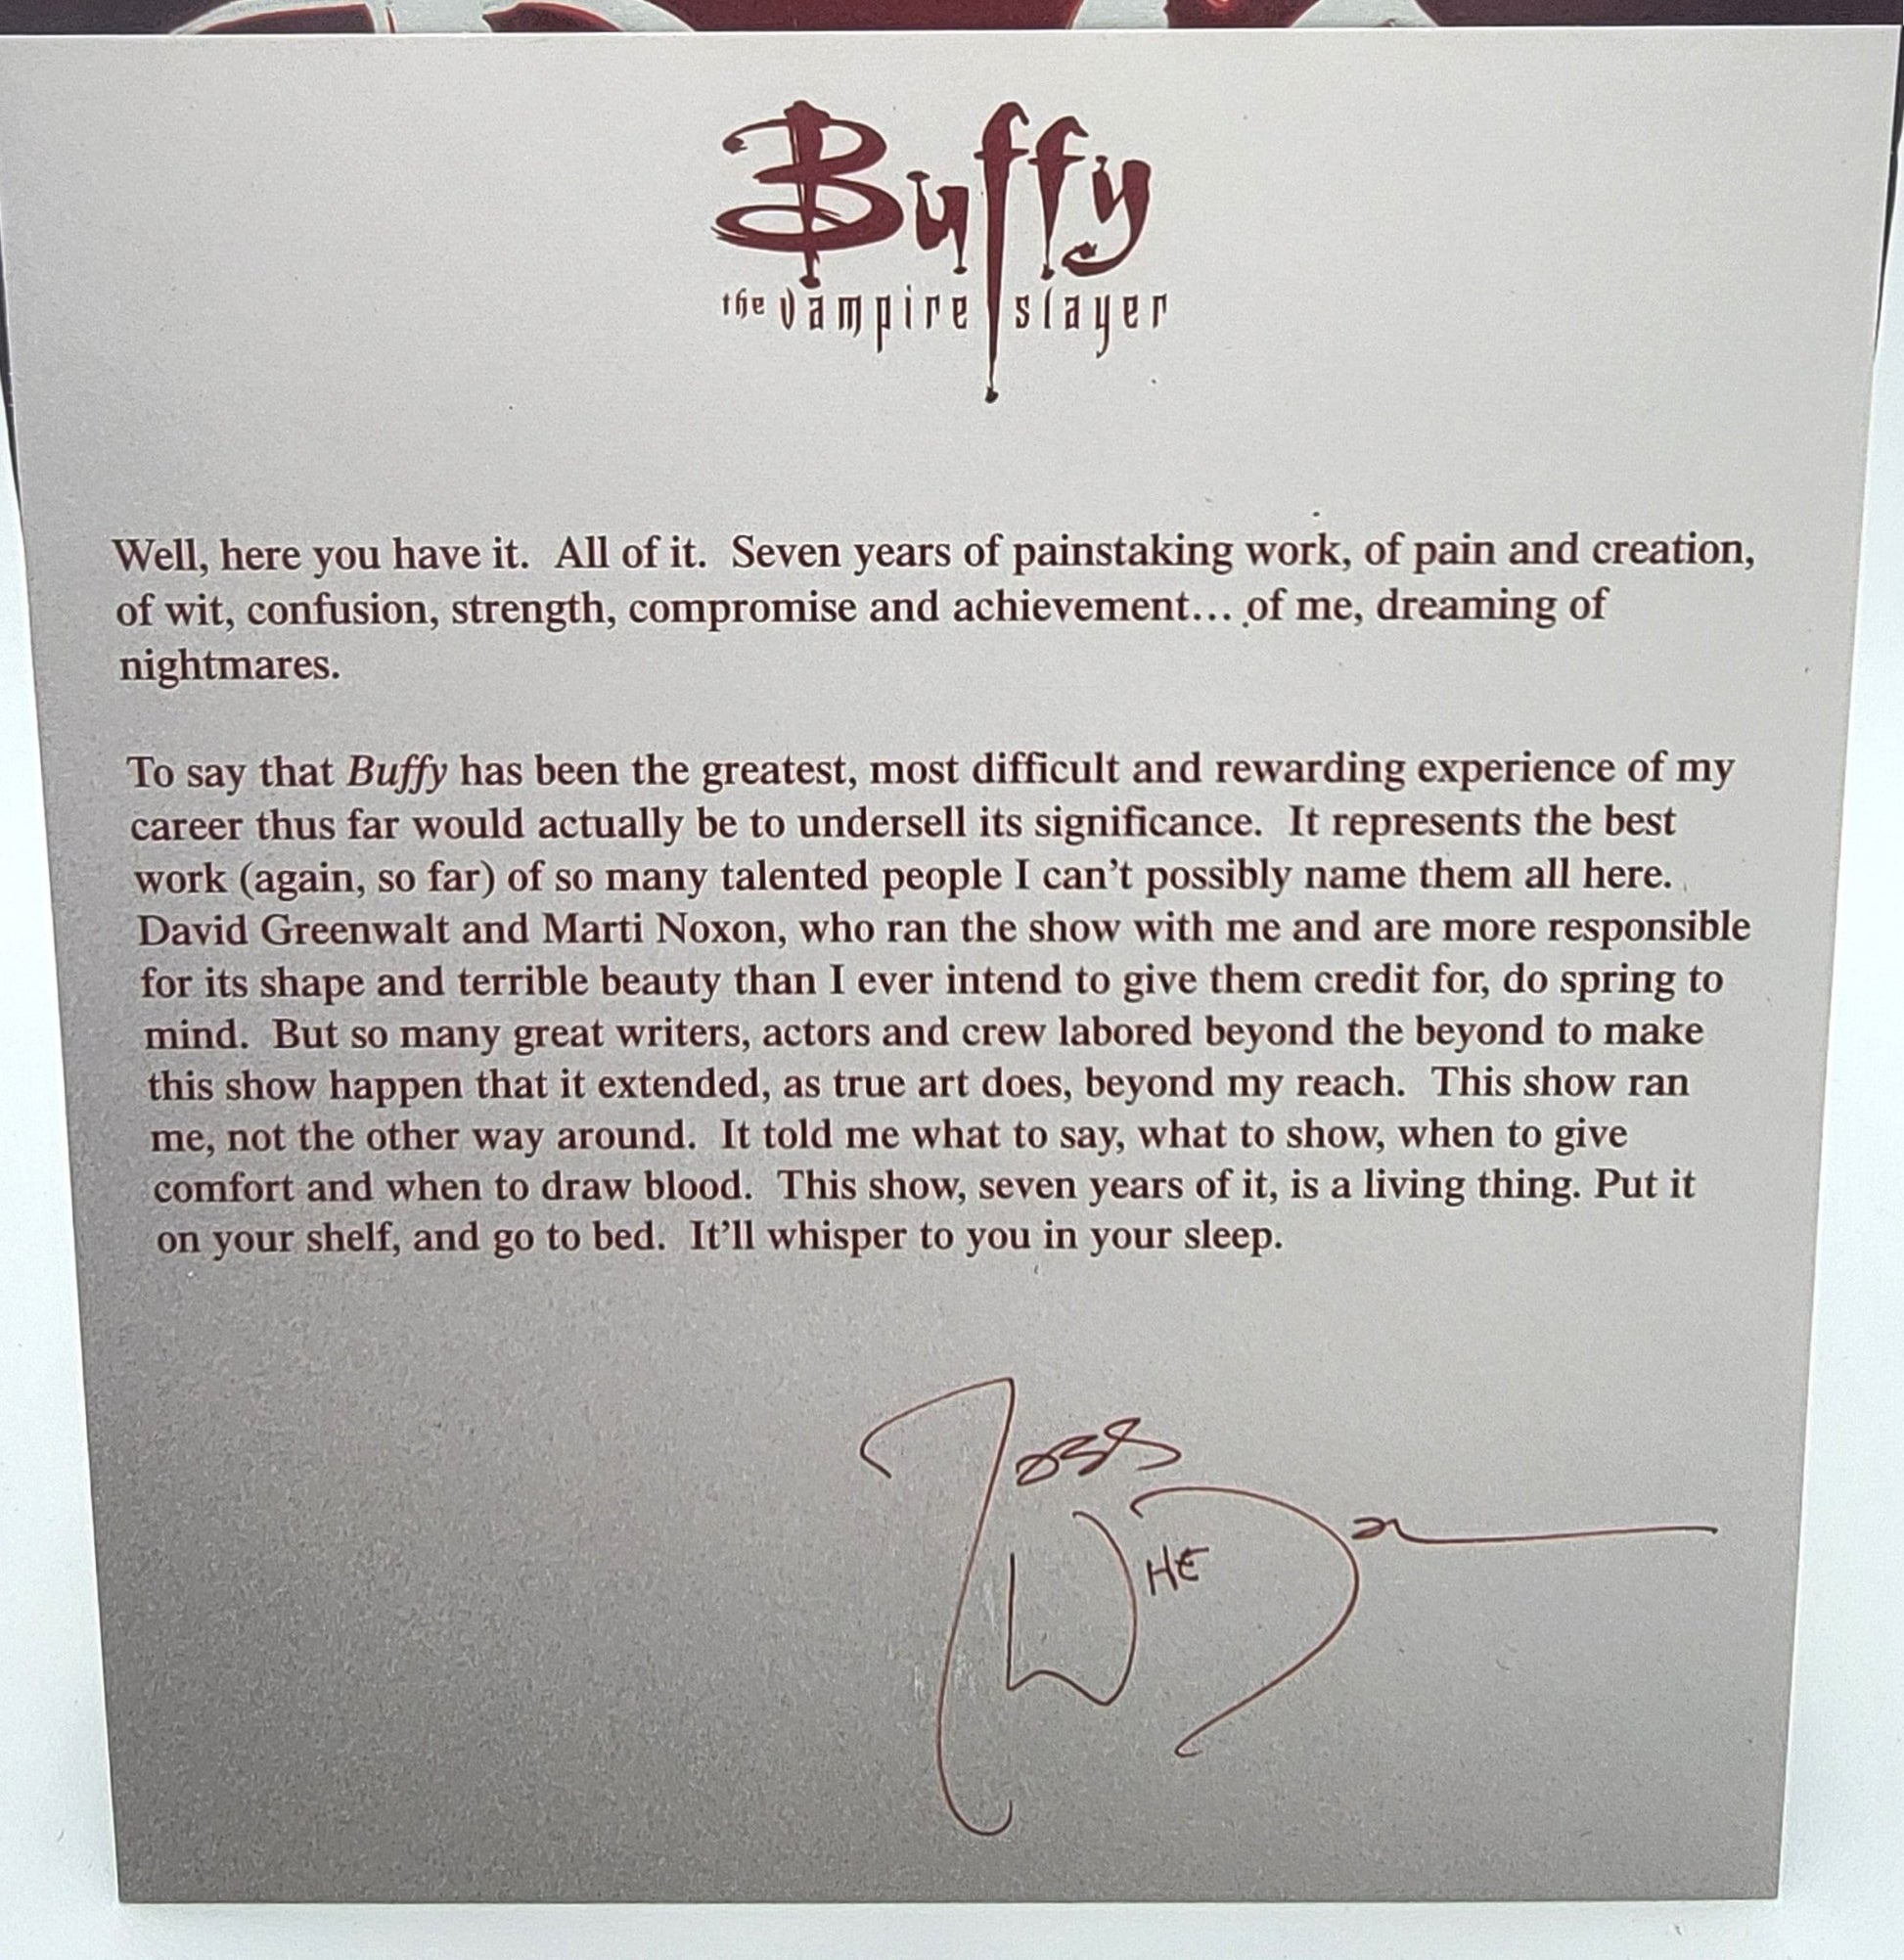 Buffy
the vampire slayer
Well, here you have it.  All of it.  Seven years of painstaking work, of pain and creation,
of wit, confusion, strength, compromise and achievement… of me, dreaming of
nightmares.
To say that Buffy has been the greatest, most difficult and rewarding experience of my
career thus far would actually be to undersell its significance.  It represents the best
work (again, so far) of so many talented people I can’t possibly name them all here.
David Greenwalt and Marti Noxon, who ran the show with me and are more responsible
for its shape and terrible beauty than I ever intend to give them credit for, do spring to
mind.  But so many great writers, actors and crew labored beyond the beyond to make
this show happen that it extended, as true art does, beyond my reach.  This show ran
me, not the other way around.  It told me what to say, what to show, when to give
comfort and when to draw blood.  This show, seven years of it, is a living thing. Put it
on your shelf, and go to bed.  It’ll whisper to you in your sleep.
Joss
WHEDon